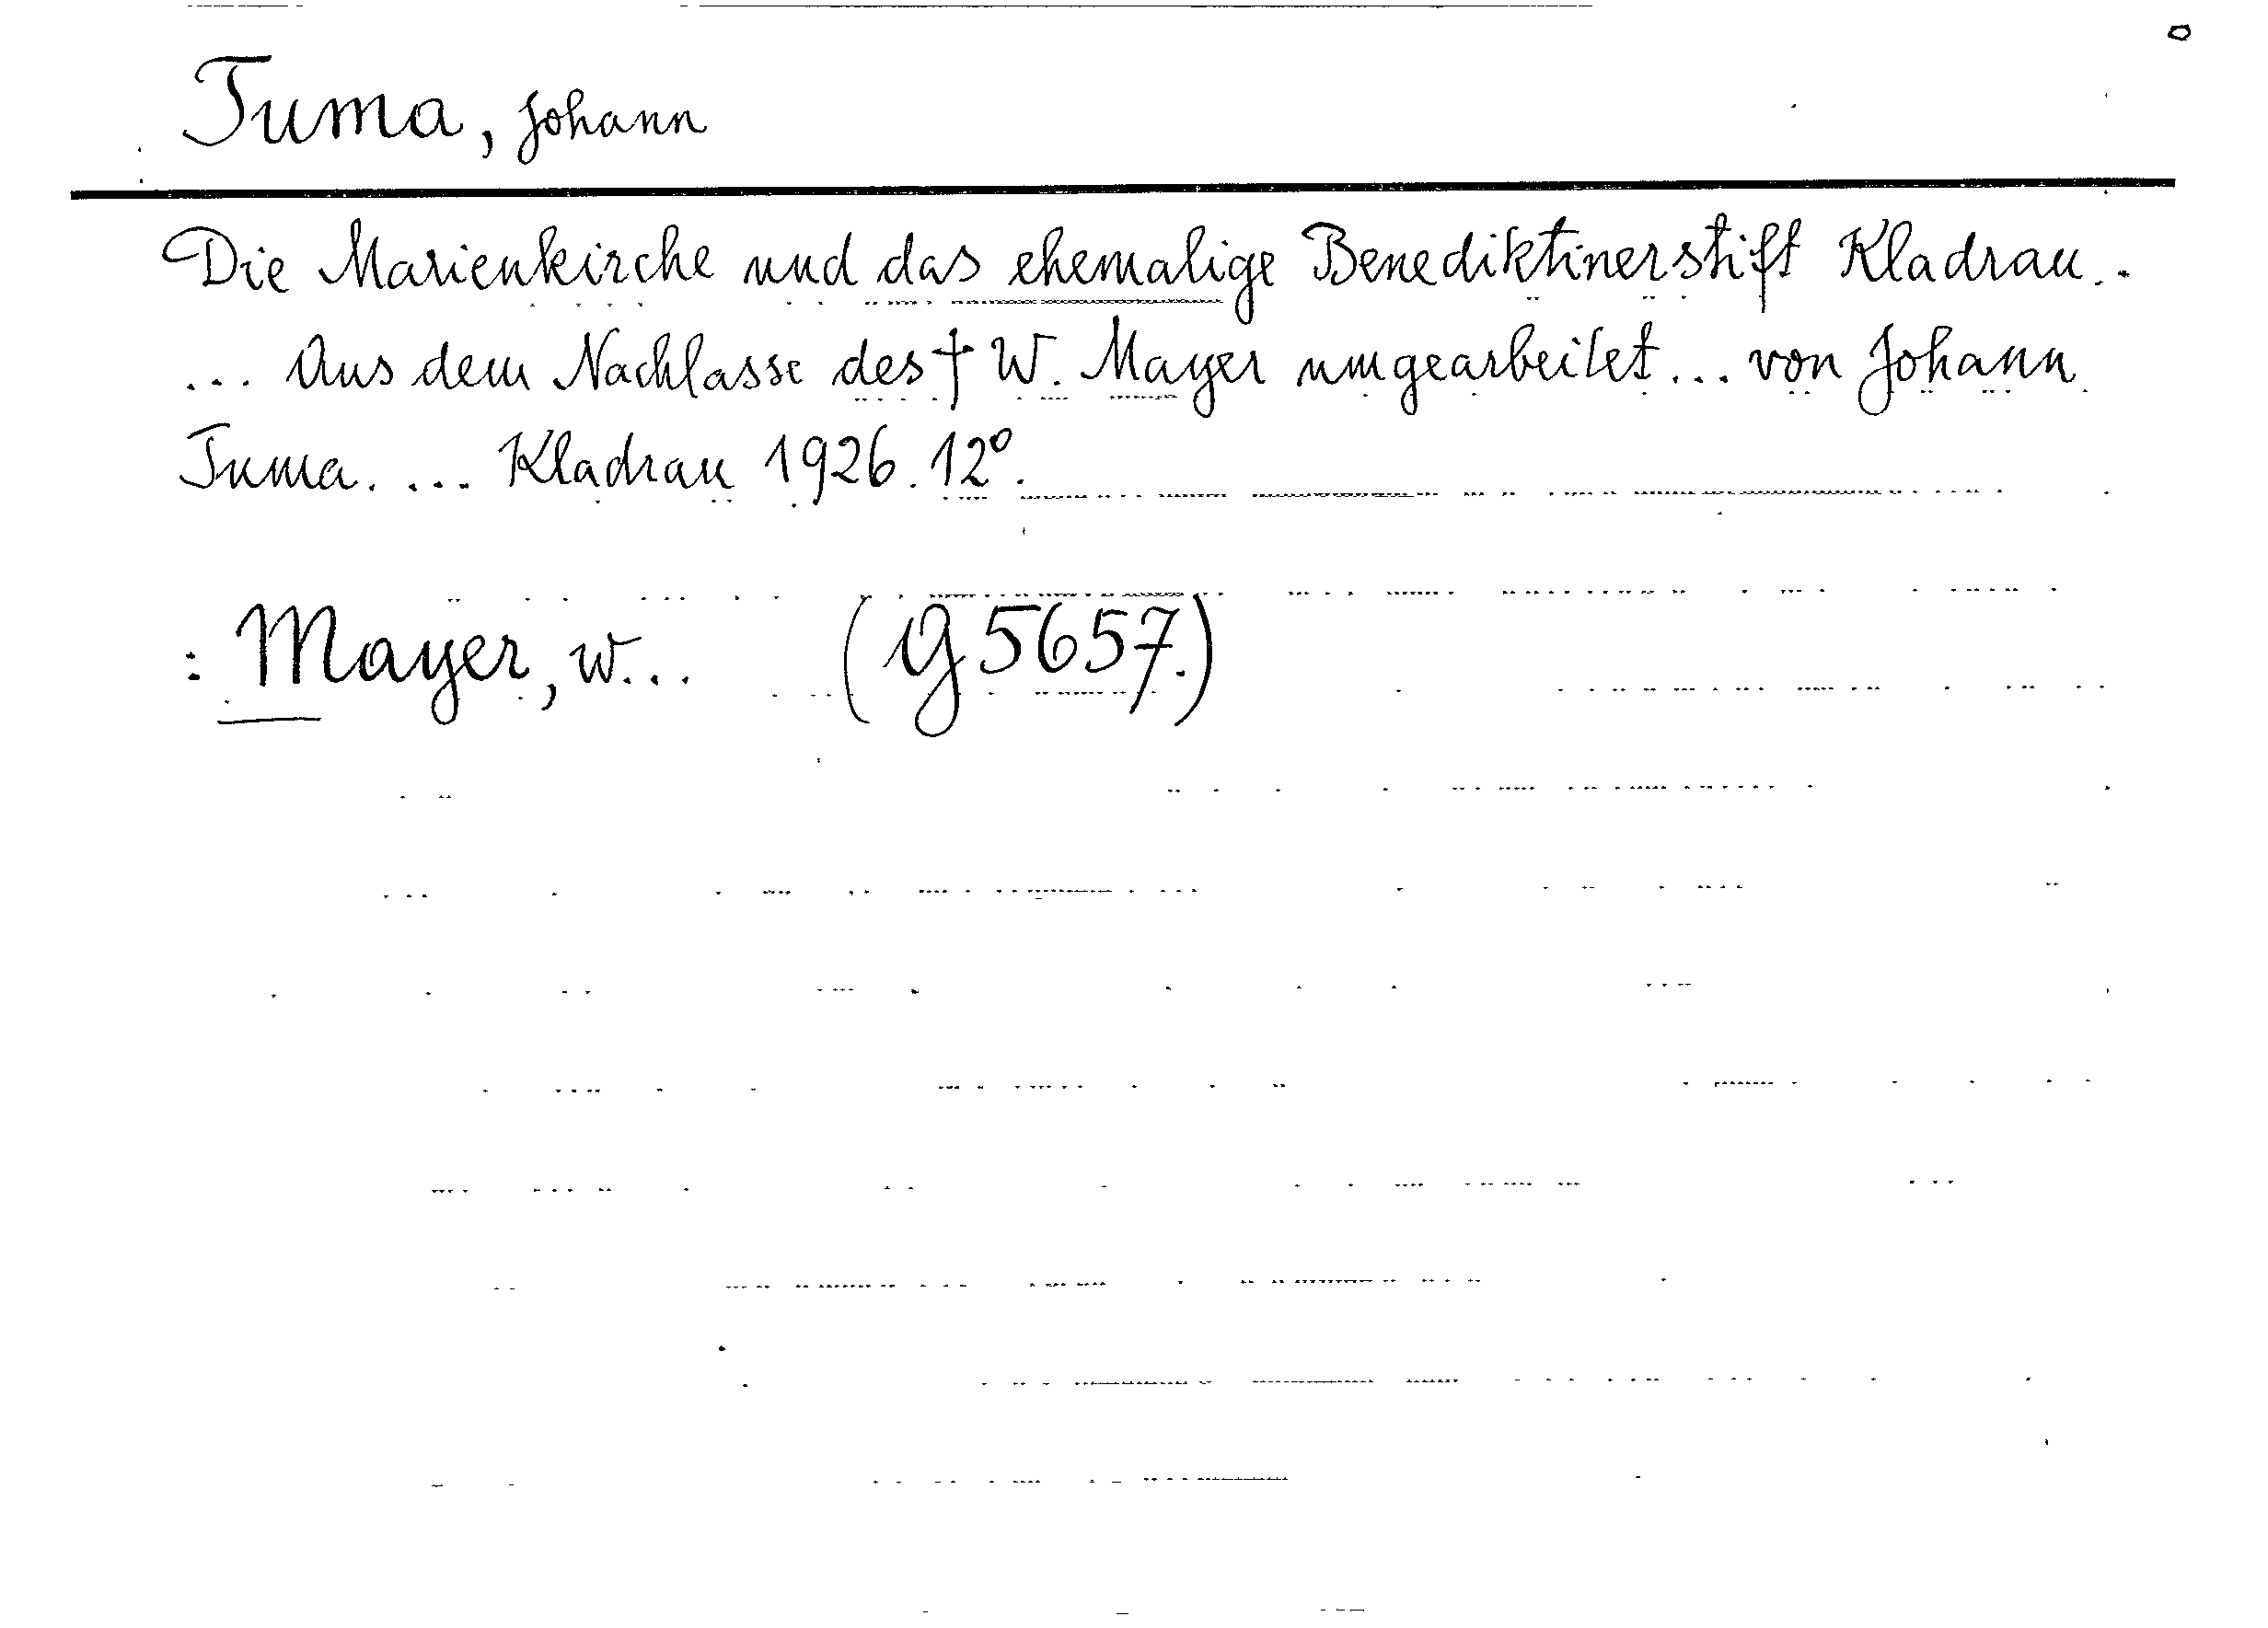 Tuma, Johann
Die Marienkirche und das ehemalige Benediktinerstift Kladrau..
... Aus dem Nachlasse des † W. Mayer umgearbeitet... von Johann
Tuma. ... Kladrau 1926. 12°.
: Mayer, W... (G 5657.)